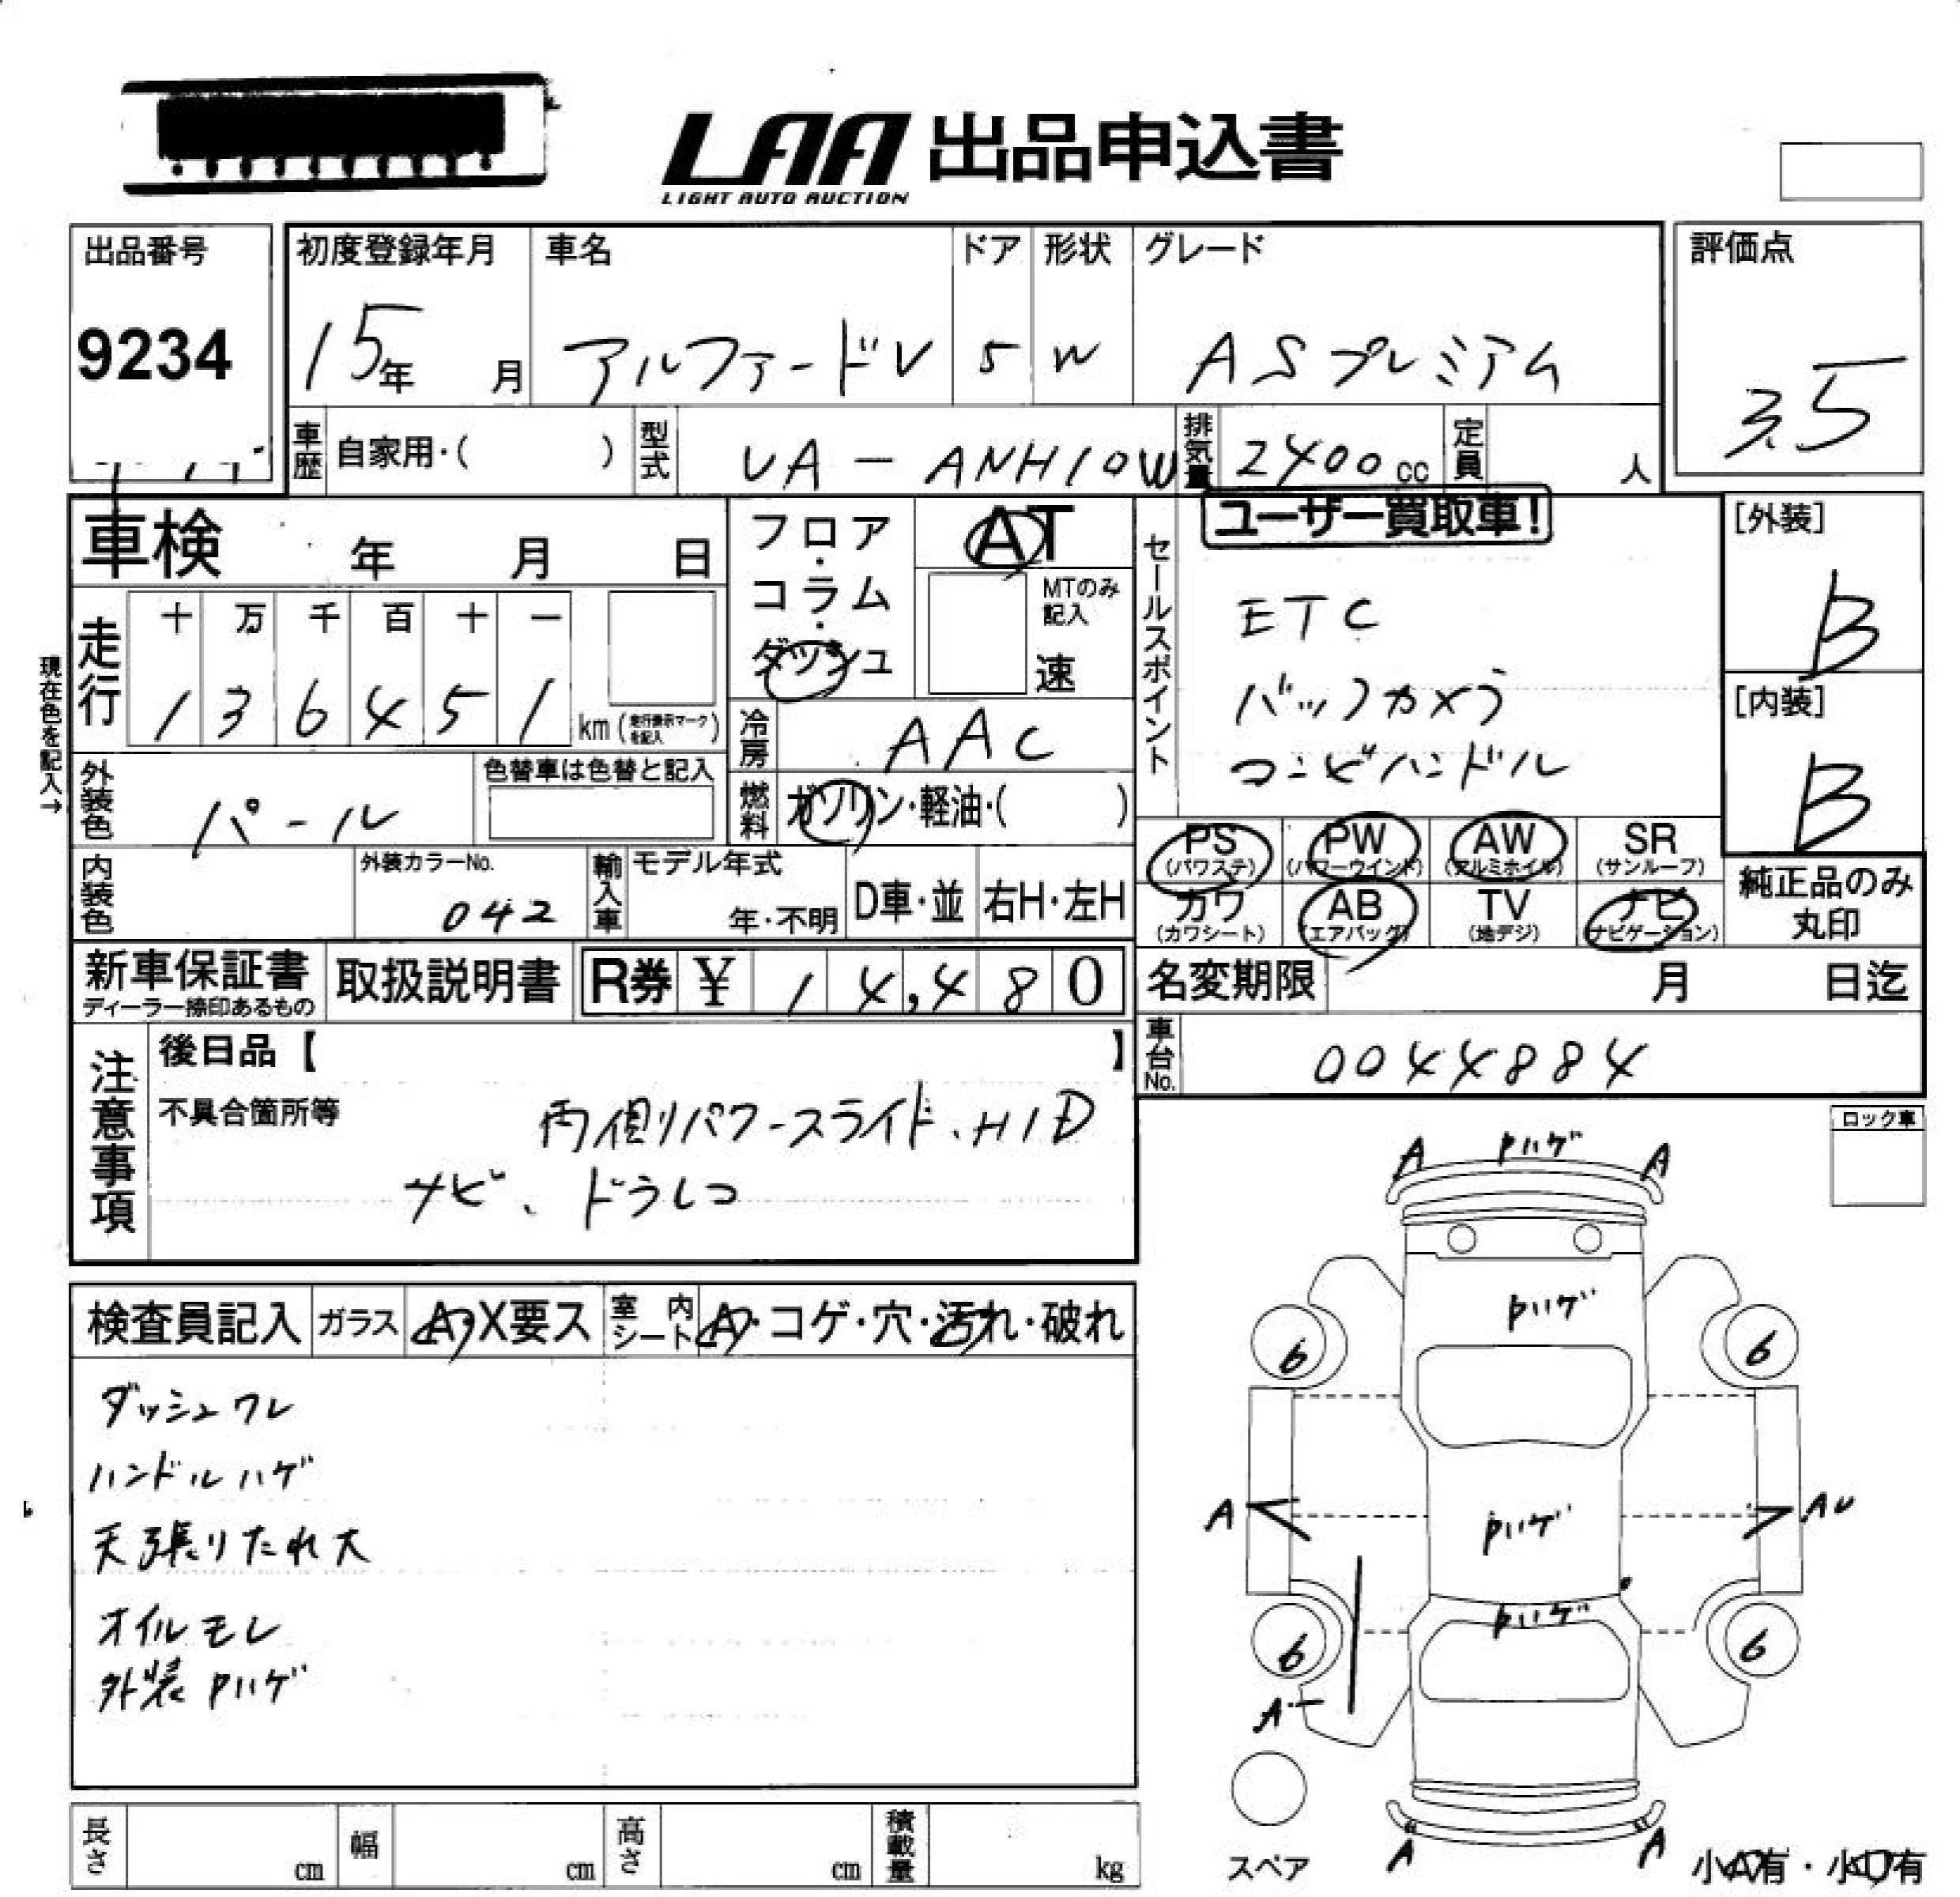 LAA 出品申込書
LIGHT AUTO AUCTION
出品番号 9234
初度登録年月 15年 月
車名 アルファードV
ドア 5
形状 W
グレード ASプレミアム
評価点 3.5
車歴 自家用・( )
型式 UA-ANH10W
排気量 2400cc
定員 人
車検 年 月 日
フロア・コラム・ダッシュ
AT
MTのみ記入
速
セールスポイント
ユーザー買取車!
ETC
バックカメラ
コンビハンドル
[外装] B
[内装] B
現在色を記入→
走行
十 万 千 百 十 一
1 3 6 4 5 1 km (走行表示マークを記入)
冷房 AAC
外装色 パール
色替車は色替と記入
燃料 ガソリン・軽油・( )
PS (パワステ) PW (パワーウインド) AW (アルミホイル) SR (サンルーフ)
カワ (カワシート) AB (エアバッグ) TV (地デジ) ナビ (ナビゲーション)
純正品のみ丸印
内装色
外装カラーNo. 042
輸入車 モデル年式 年・不明 D車・並 右H・左H
新車保証書 ディーラー捺印あるもの
取扱説明書
R券 ¥ 14,480
名変期限 月 日迄
車台No. 0044884
注意事項
後日品【 】
不具合箇所等 両側パワースライド、HID
ナビ、ドラレコ
ロック車
検査員記入 ガラス A・X要ス 室内シート A・コゲ・穴・汚れ・破れ
ダッシュワレ
ハンドルハゲ
天張りたれ大
オイルモレ
外装Pハゲ
A Pハゲ A
Pハゲ
6 6
A Pハゲ AU
Pハゲ
6 6
A
スペア
A A
小A有・小U有
長さ cm 幅 cm 高さ cm 積載量 kg